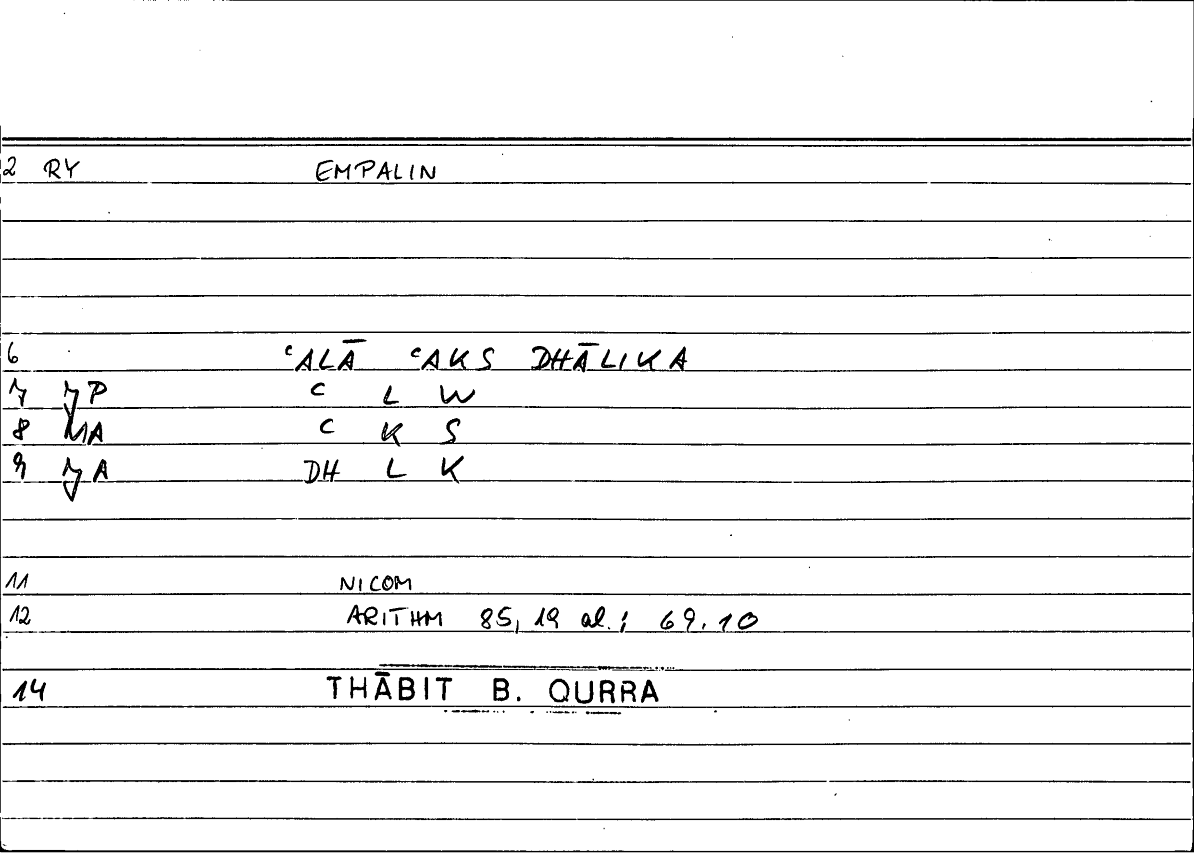 2 RY EMPALIN
6 ʿALĀ ʿAKS DHĀLIKA
7 JP ʿ L W
8 MA ʿ K S
9 JA DH L K
11 NICOM
12 ARITHM 85, 19 al.; 69.10
14 THĀBIT B. QURRA